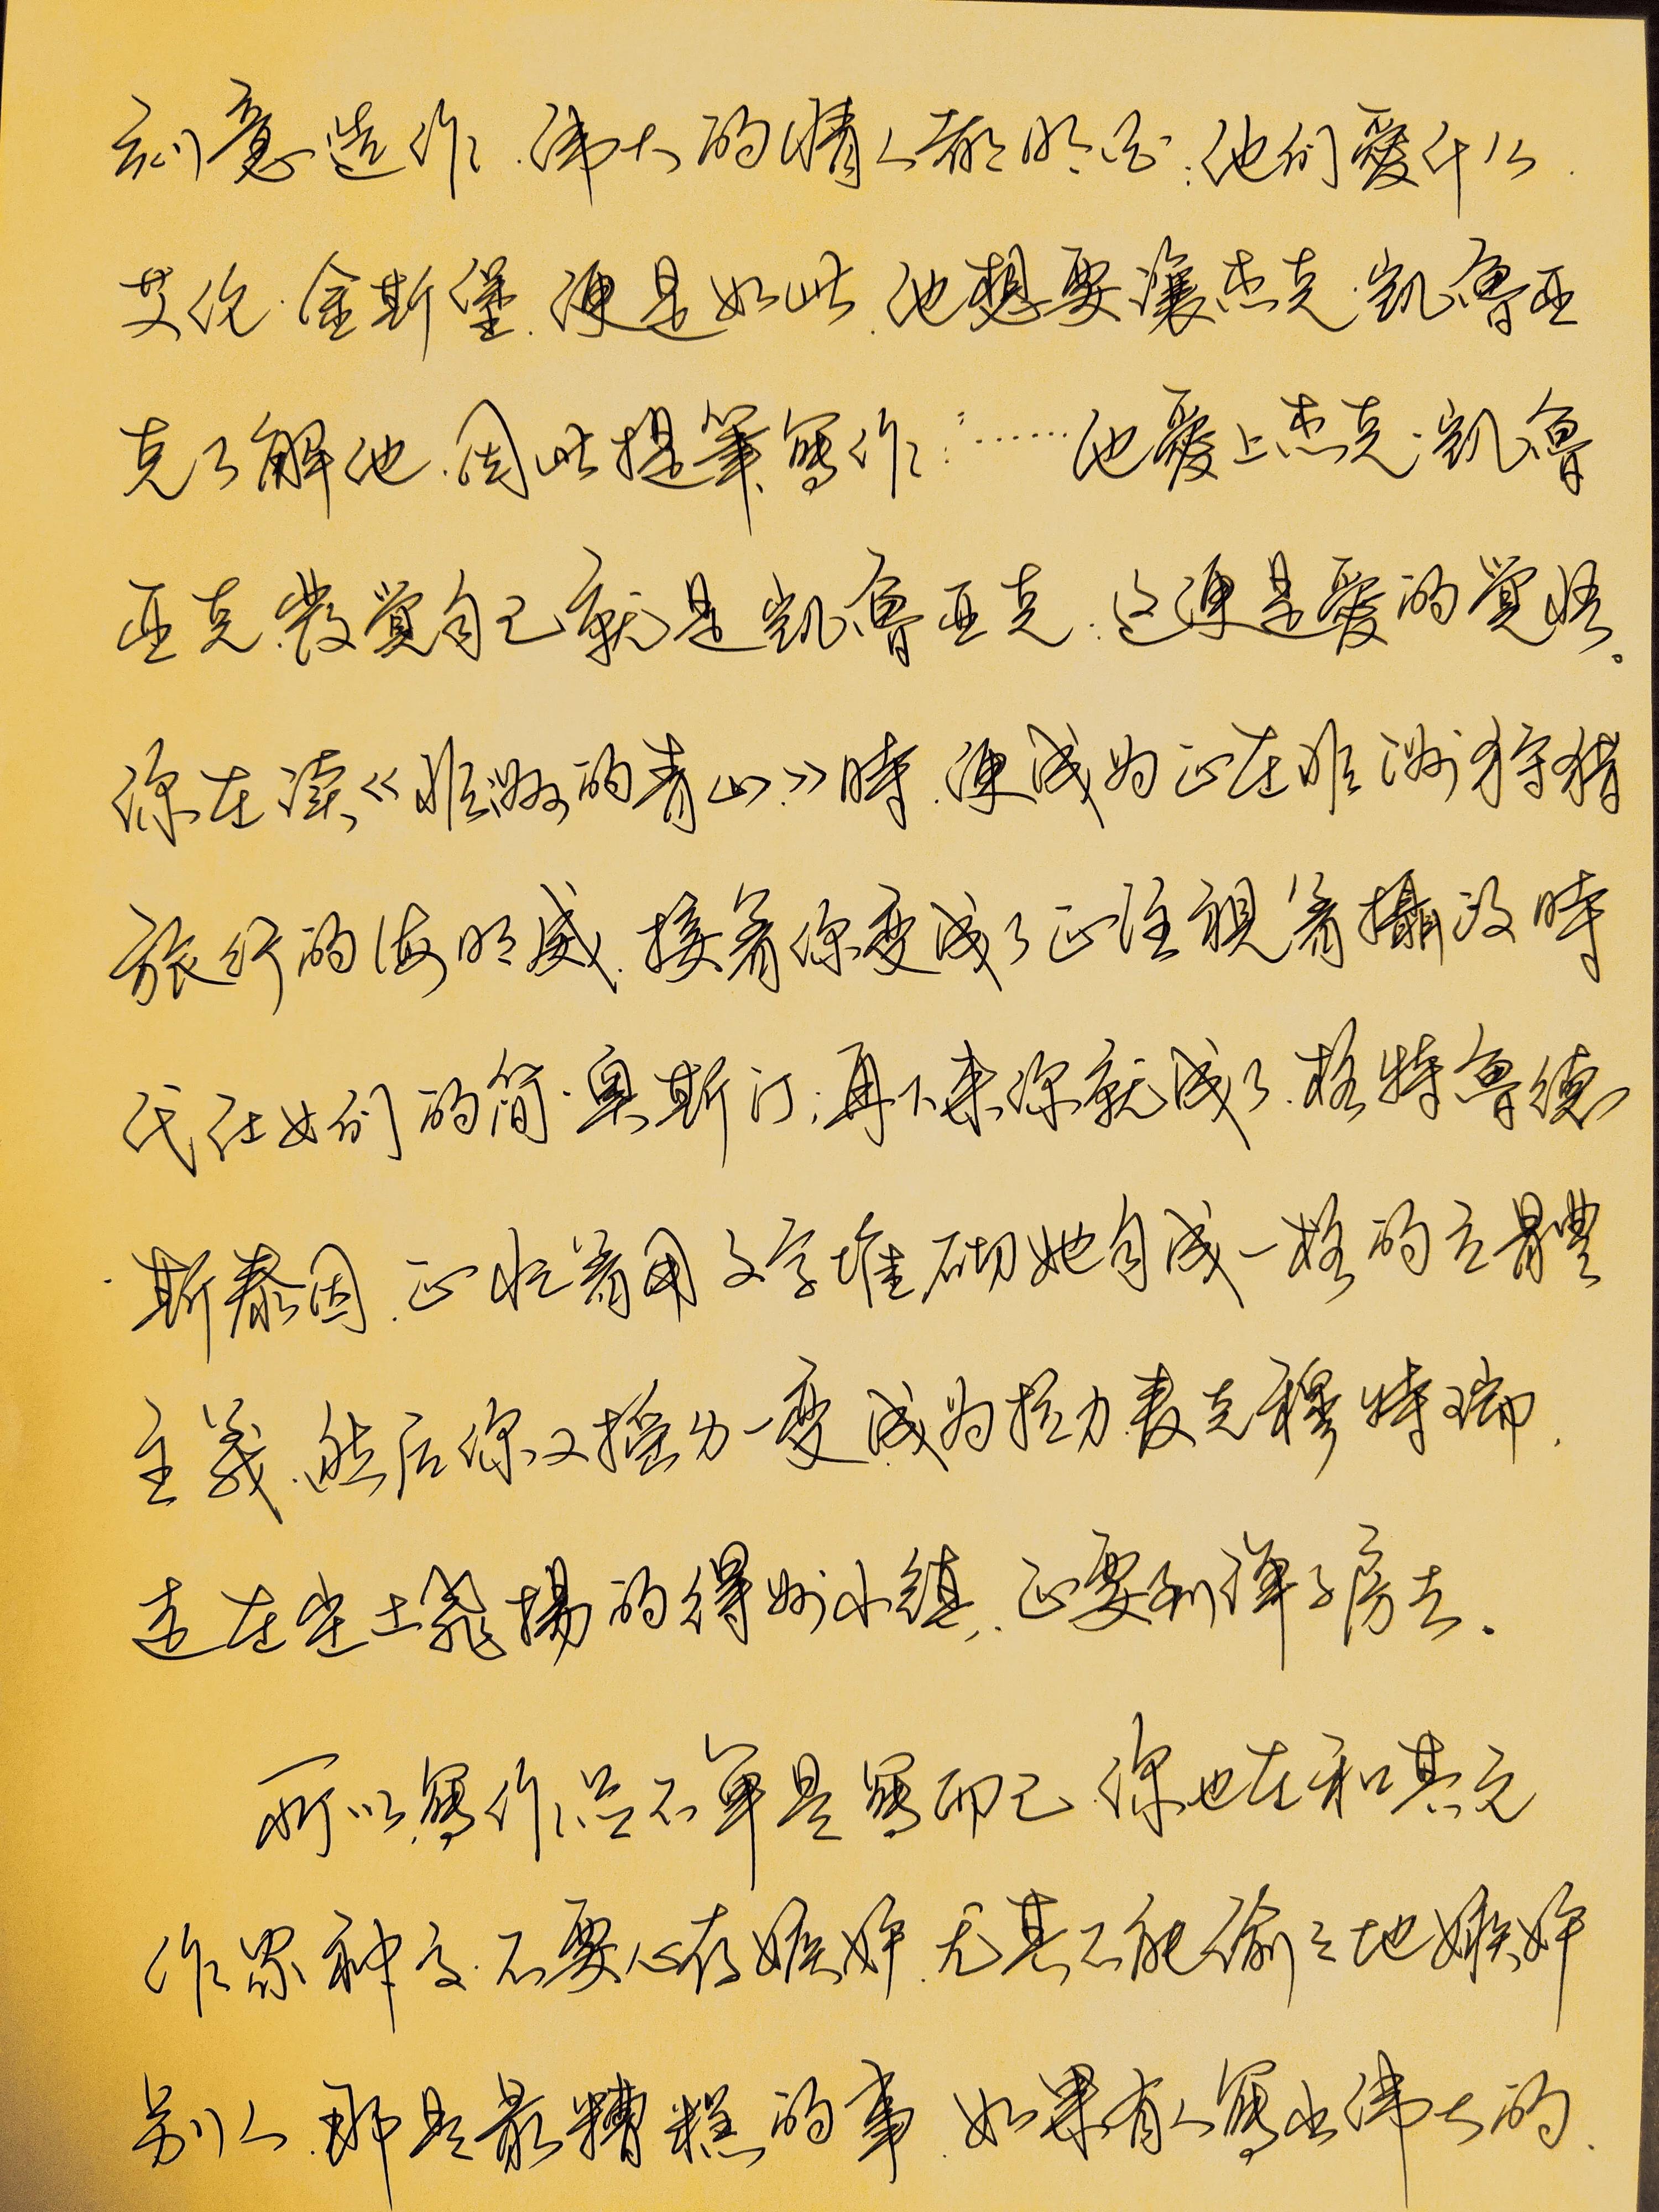 刻意造作.伟大的情人都明白:他们爱什么.
艾伦·金斯堡.便是如此.他想要讓杰克·凯鲁亚
克了解他.因此提筆寫作:“……他爱上杰克·凯鲁
亚克.發覺自己就是凯鲁亚克.这便是爱的覺悟。
你在读《非洲的青山》時.便成为正在非洲狩猎
旅行的海明威.接着你变成了正注視着攝政時
代仕女们的简·奥斯汀;再下来你就成了.格特鲁德
·斯泰因.正忙着用文字堆砌她自成一格的立體
主義.然后你又摇身一变.成为拉力.麦克穆特瑞.
走在尘土飛揚的得州小鎮.正要到弹子房去.
所以.寫作.总不單是寫而已.你也在和其它
作家神交.不要心存嫉妒.尤其不能偷々地嫉妒
别人.那是最糟糕的事.如果有人寫出伟大的.